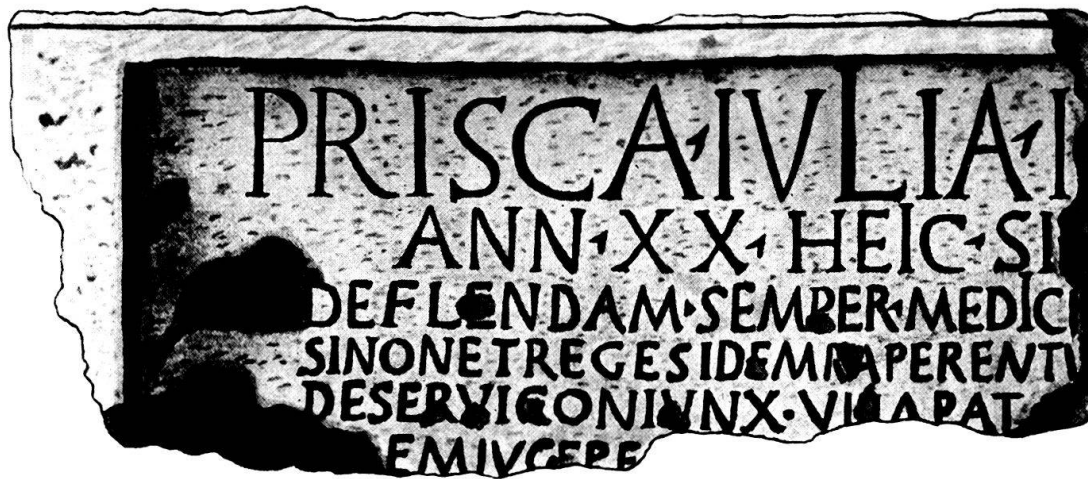 PRISCA·IVLIA·I
ANN·XX·HEIC·SI
DEFLENDAM·SEMPER·MEDIC
SINONETREGESIDEMRAPERENTV
DESERVICONIVNX·VITAPAT